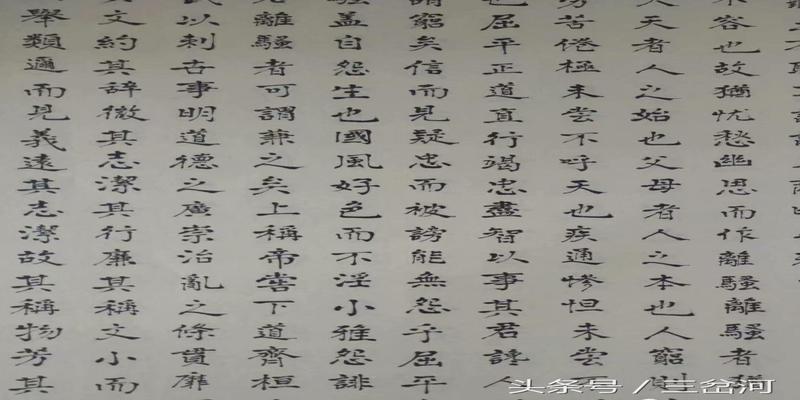 不容也故猶忧愁幽思而作離騷離騷者猶
天者人之始也父母者人之本也人窮則
勞苦倦極未嘗不呼天也疾通慘怛未嘗不
也屈平正道直行竭忠盡智以事其君讒人
謂窮矣信而見疑忠而被謗能無怨乎屈平
騷蓋自怨生也國風好色而不淫小雅怨誹
若離騷者可謂兼之矣上稱帝嚳下道齊桓
武以刺古事明道德之廣崇治亂之條貫靡
其文約其辭微其志潔其行廉其稱文小而
舉類邇而見義遠其志潔故其稱物芳其
头条号／三岔河